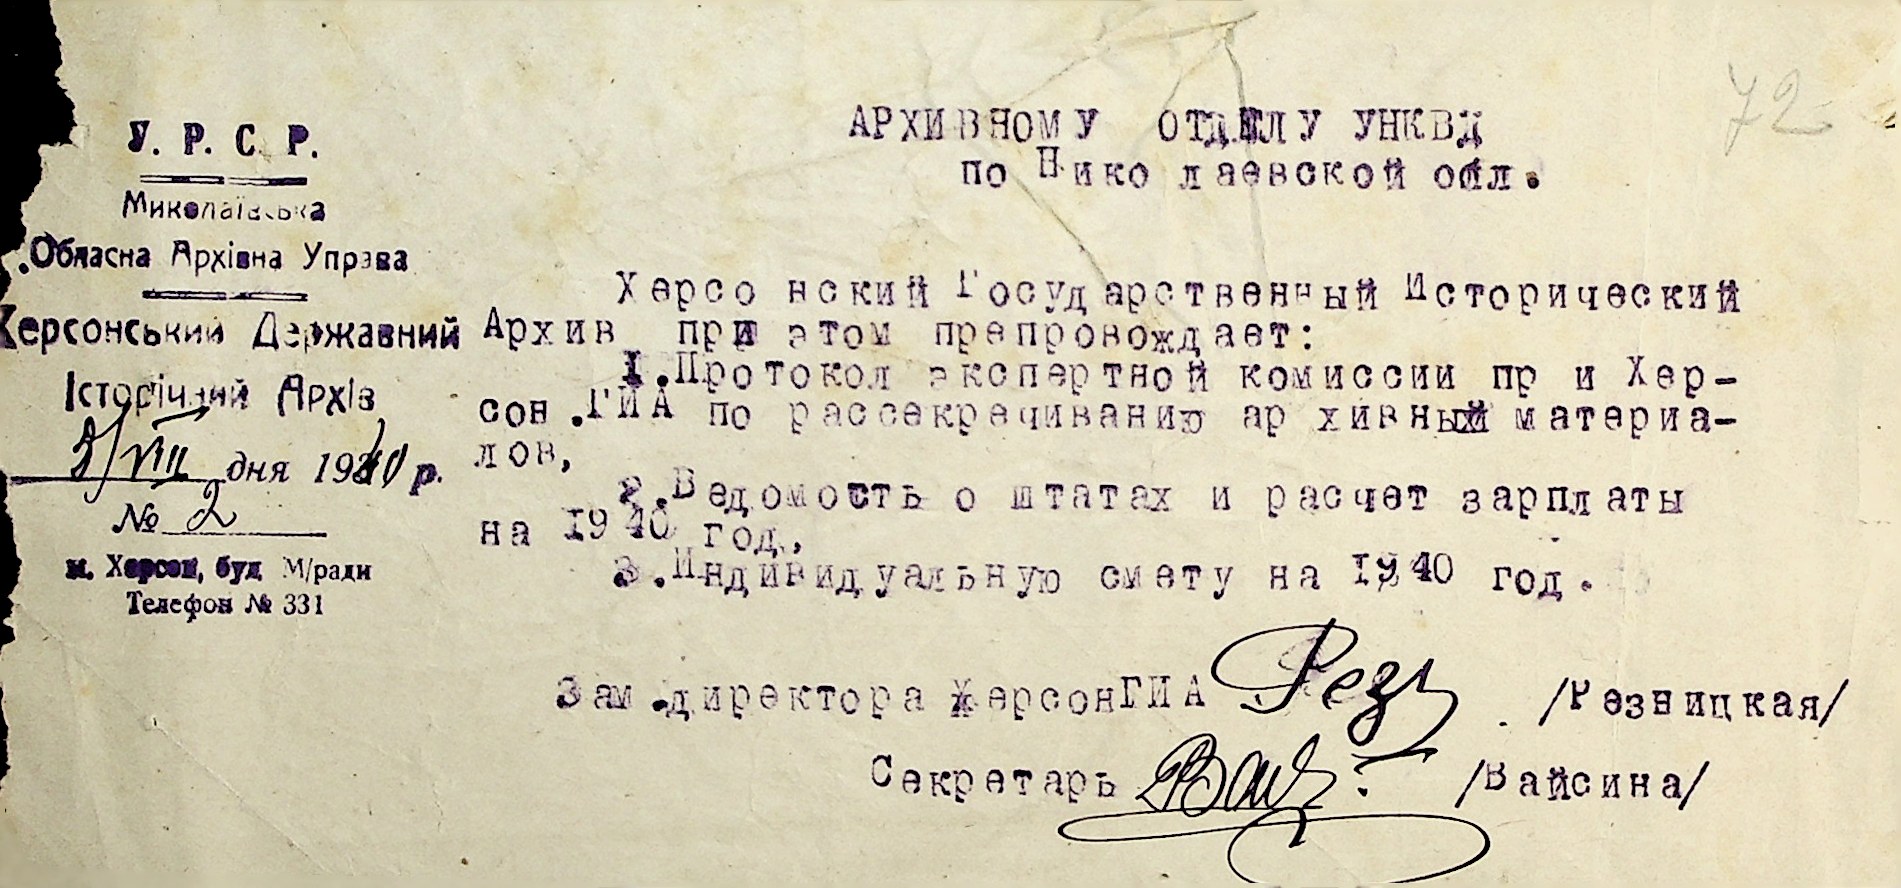 72
У. Р. С. Р.
Миколаївська
Обласна Архівна Управа
Херсонський Державний
Історічний Архів
дня 1940 р.
№ 2
м. Херсон, буд М/ради
Телефон № 331
АРХИВНОМУ ОТДЕЛУ УНКВД
по Николаевской обл.
Херсонский Государственный Исторический
Архив при этом препровождает:
1.Протокол экспертной комиссии при Хер-
сон.ГИА по рассекречиванию архивный материа-
лов,
2.Ведомость о штатах и расчет зарплаты
на 1940 год,
3.Индивидуальную смету на 1940 год.
Зам.директора ХерсонГИА Рез /Резницкая/
Секретарь /Вайсина/